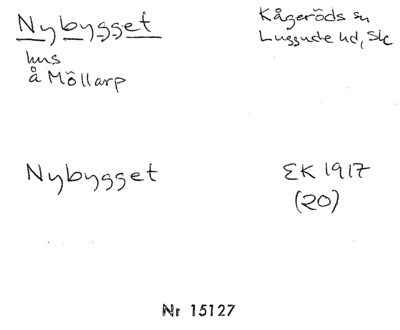 Nybygget
hus
å Möllarp
Kågeröds sn
Luggude hd, Sk
Nybygget
EK 1917
(20)
Nr 15127